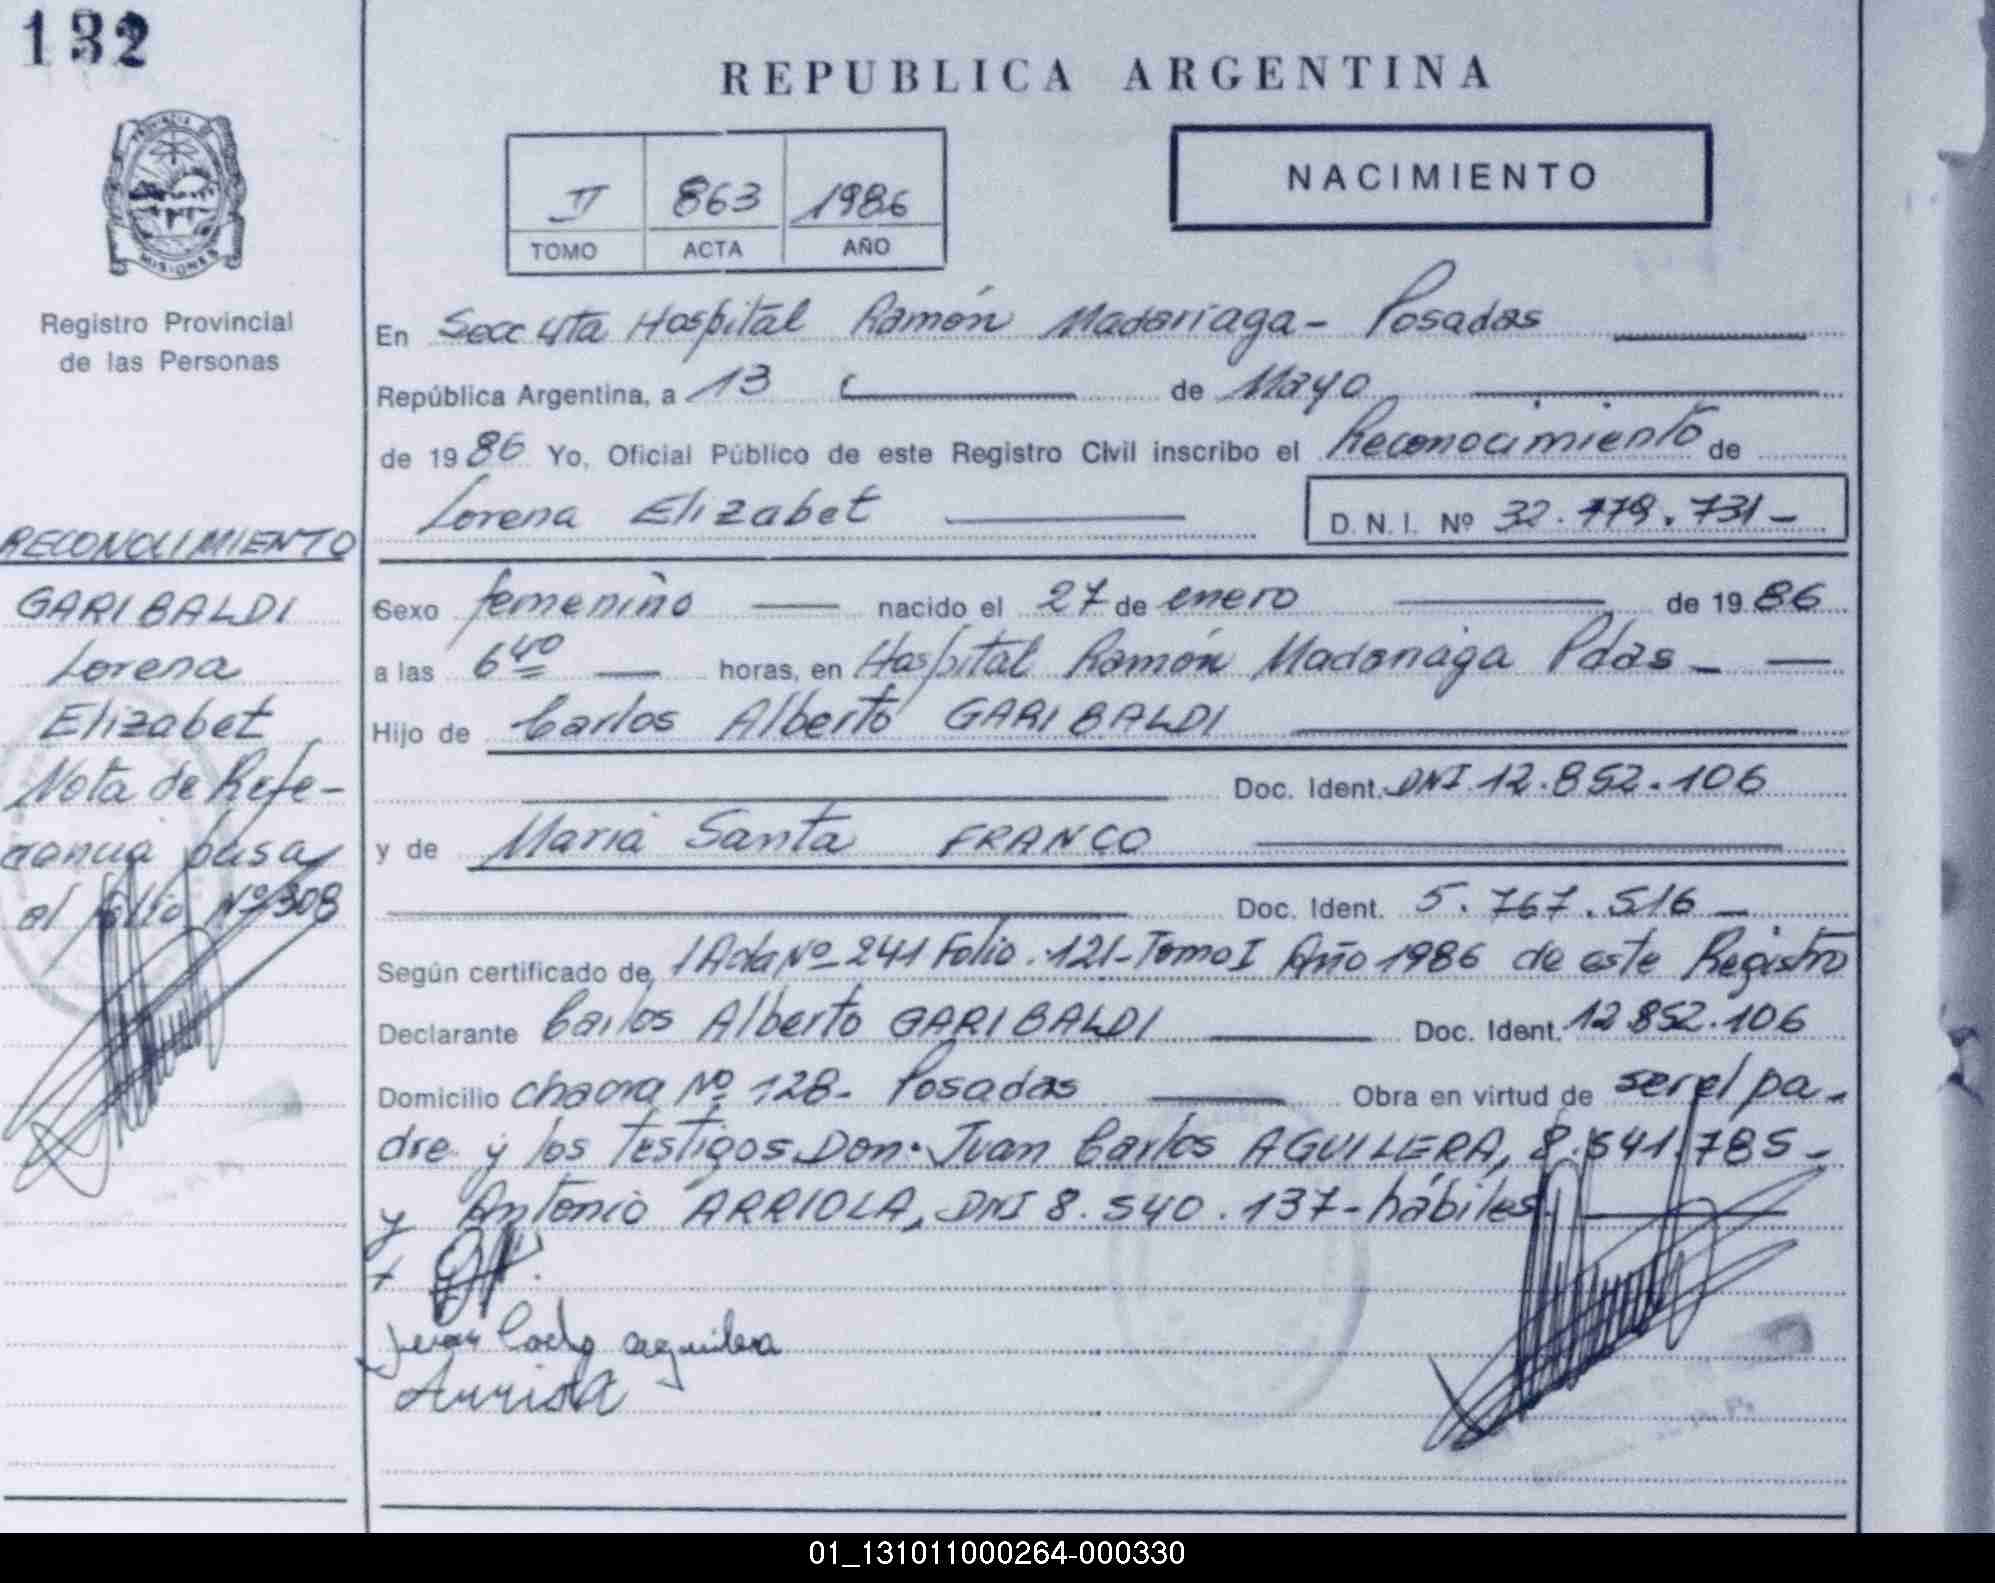 132
REPUBLICA ARGENTINA
NACIMIENTO
II 863 1986
TOMO ACTA AÑO
PROVINCIA DE
MISIONES
Registro Provincial
de las Personas
En Secc 4ta Hospital Ramón Madariaga - Posadas
República Argentina, a 13 de Mayo
de 1986 Yo, Oficial Público de este Registro Civil inscribo el Reconocimiento de
Lorena Elizabet D.N.I. Nº 32.778.731-
RECONOCIMIENTO
GARIBALDI
Lorena
Elizabet
Nota de Refe-
rencia pasa
al folio Nº 308
Sexo femenino nacido el 27 de enero de 1986
a las 6 40 horas, en Hospital Ramón Madariaga Pdas -
Hijo de Carlos Alberto GARIBALDI
Doc. Ident. DNI 12.852.106
y de Maria Santa FRANCO
Doc. Ident. 5.767.516 -
Según certificado de, Acta Nº 241 Folio 121 - Tomo I Año 1986 de este Registro
Declarante Carlos Alberto GARIBALDI Doc. Ident. 12.852.106
Domicilio chacra Nº 128 - Posadas Obra en virtud de ser el pa-
dre y los testigos Don. Juan Carlos AGUILERA, 8.541.785 -
y Antonio ARRIOLA, DNI 8.540.137 - hábiles
Juan Carlos aguilera
Arriola
01_131011000264-000330